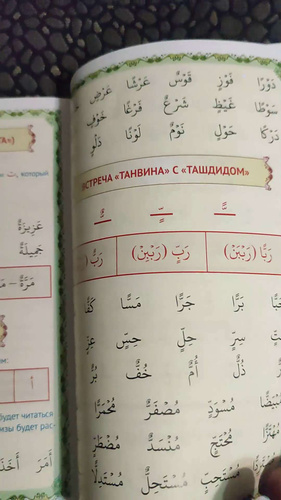 دَوْرًا فَوْزٍ قَوْسٌ عَرْشًا عَرْضٍ
سَوْطًا غَيْظٍ شَرْعٌ فَرْعًا خَوْفٍ
دَرْكًا حَوْلٍ نَوْمٌ لَوْنًا دَلْوٍ
СТРЕЧА «ТАНВИНА» С «ТАШДИДОМ»
رَبًّا (رَبْبَنْ) رَبٍّ (رَبْبِنْ) رَبٌّ
بَرًّا جَرًّا مَسًّا كَفًّا
سِرٍّ حِلٍّ حِسٍّ عِزٍّ
ذُلٌّ أُمٌّ خُفٌّ بُرٌّ
مُسْوَدٍّ مُصْفَرٌّ مُحْمَرًّا
مُحْتَجٍّ مُنْسَدٌّ مُضْطَرٍّ
مُسْتَحِبٍّ مُسْتَحِلٌّ مُسْتَدِلًّا
ТА»)
ت, который
عَزِيزَةٌ
جَمِيلَةٌ
مَرَّةٌ
ан:
أ
будет читаться
нзы будет рас-
أَمَرَ أَخَذَ